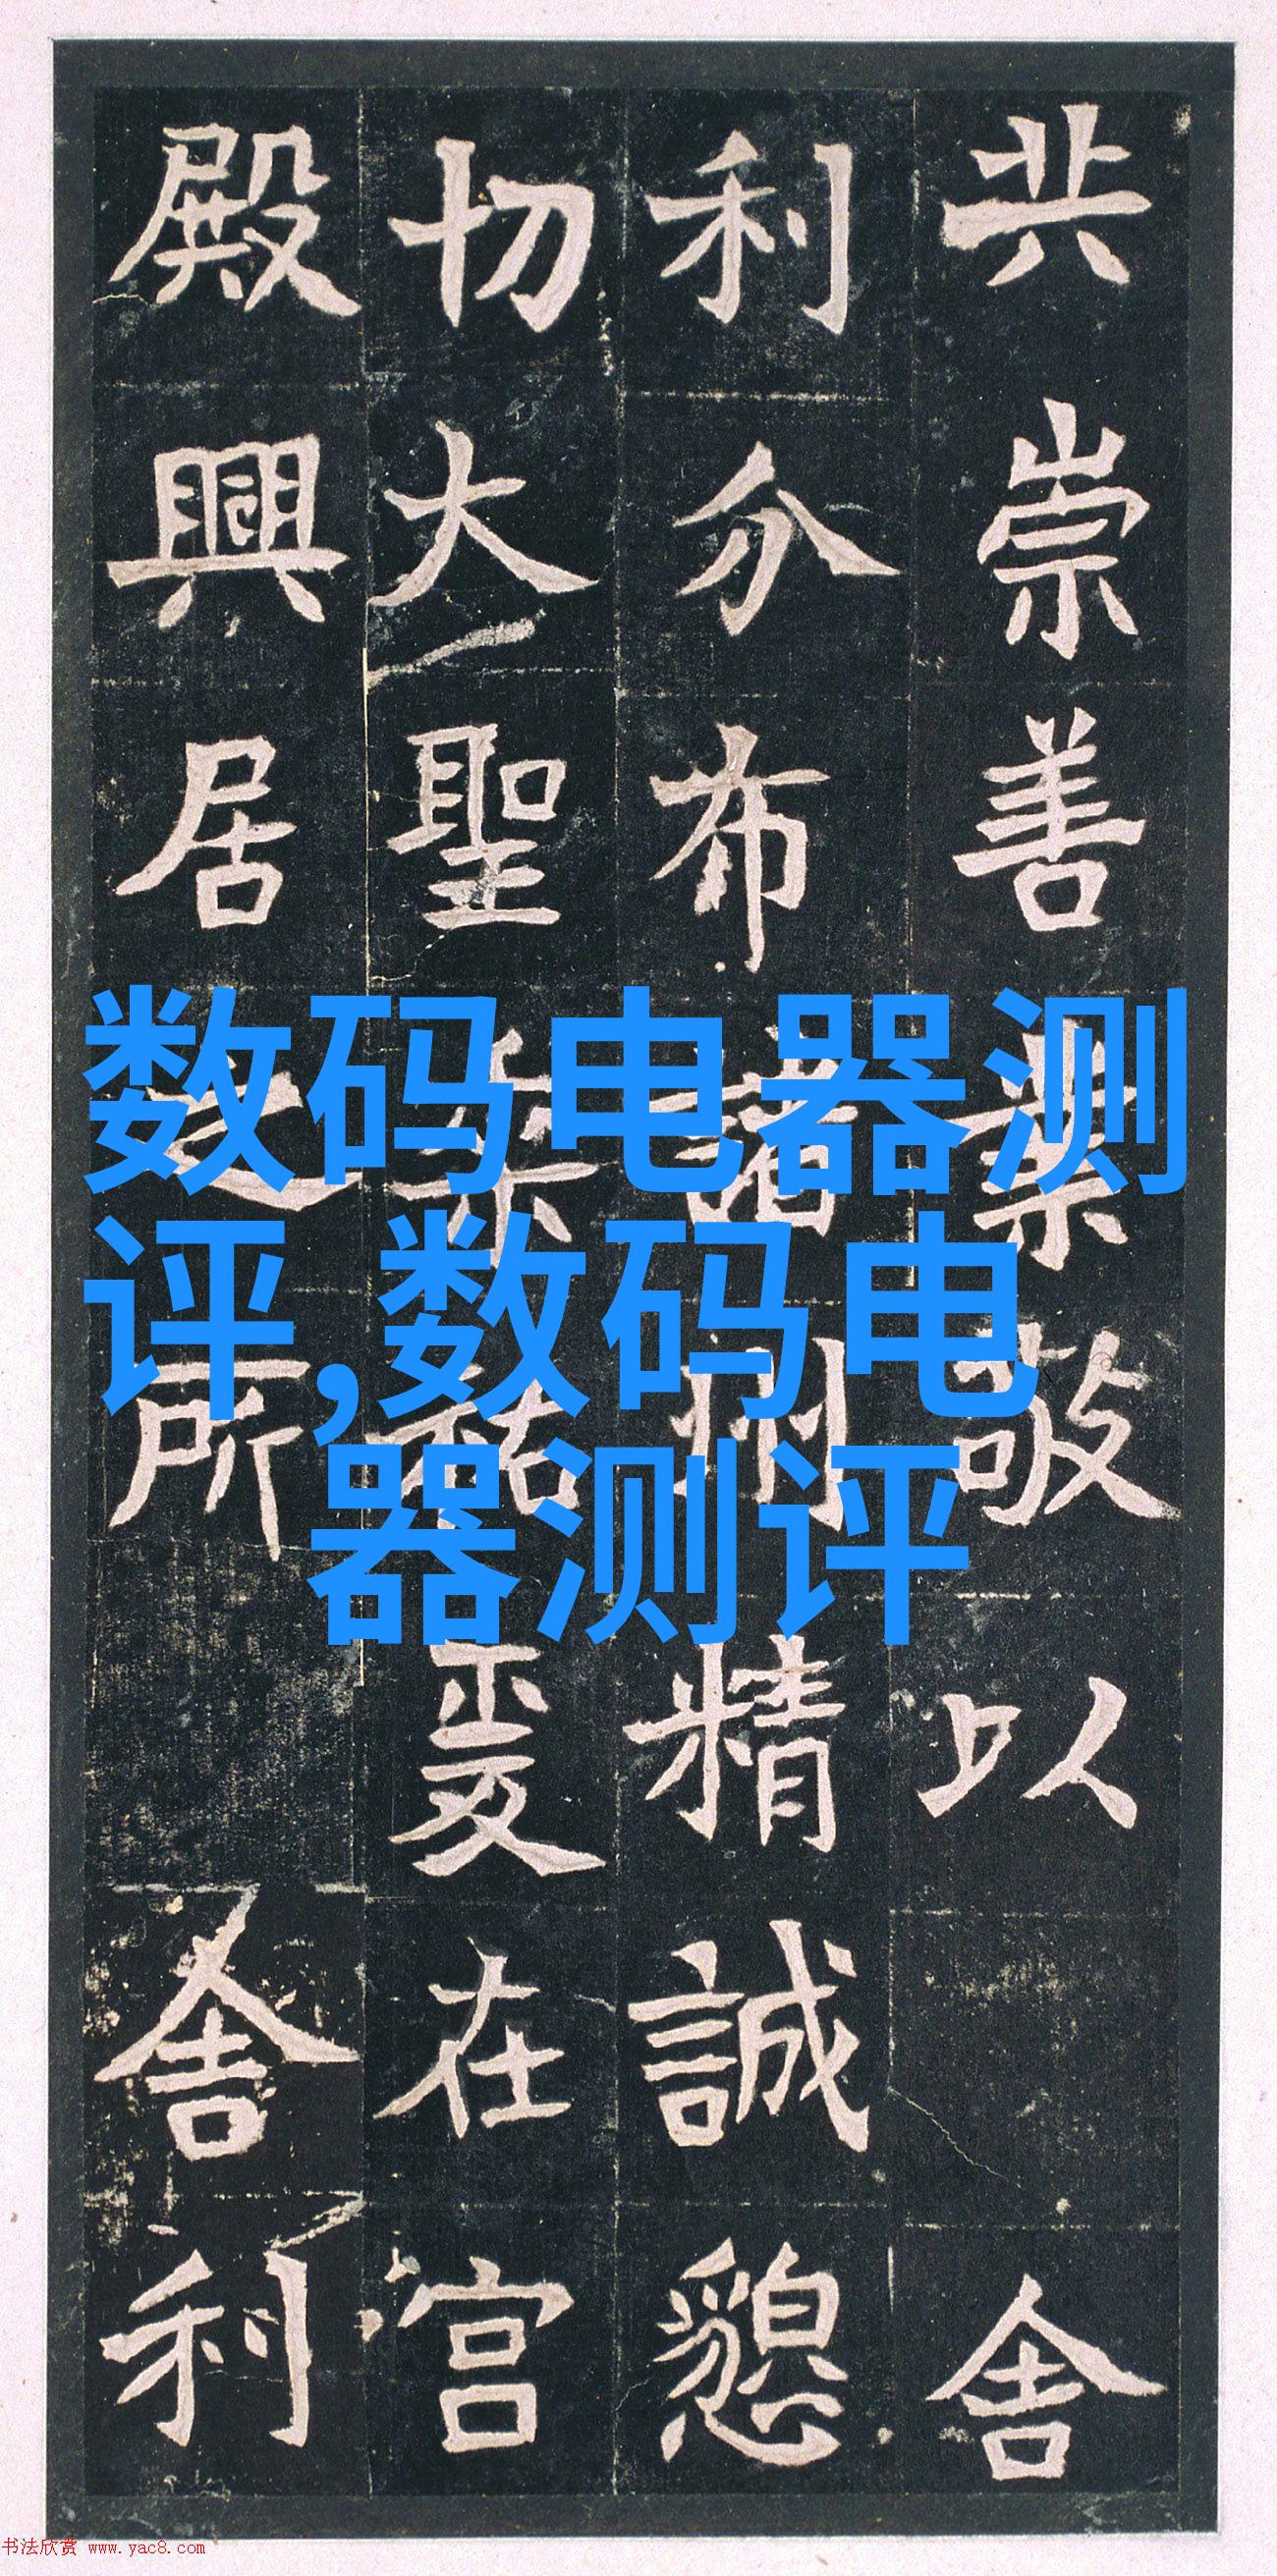 共崇善業敬以舍
利分布諸州精誠懇
切大聖垂祐爰在宫
殿興居之所舍利
数码电器测
评,数码电
器测评
书法欣赏 www.yac8.com